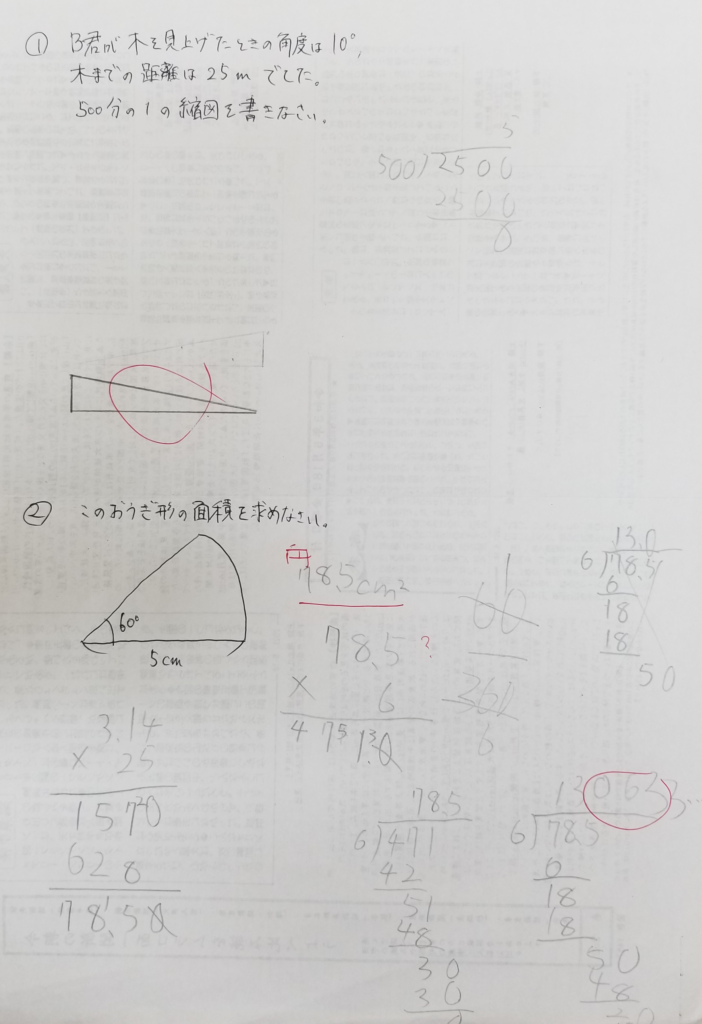 ① B君が木を見上げたときの角度は10°,
木までの距離は25mでした。
500分の1の縮図を書きなさい。
5
500)2500
2500
0
② このおうぎ形の面積を求めなさい。
60°
5cm
78.5cm²
78.5 ?
× 6
471.0
1
60
360
6
13.0
6)78.5
6
18
18
50
3.14
× 25
1570
628
78.50
785
6)471
42
51
48
30
30
0
6)78.5
6
18
18
50
48